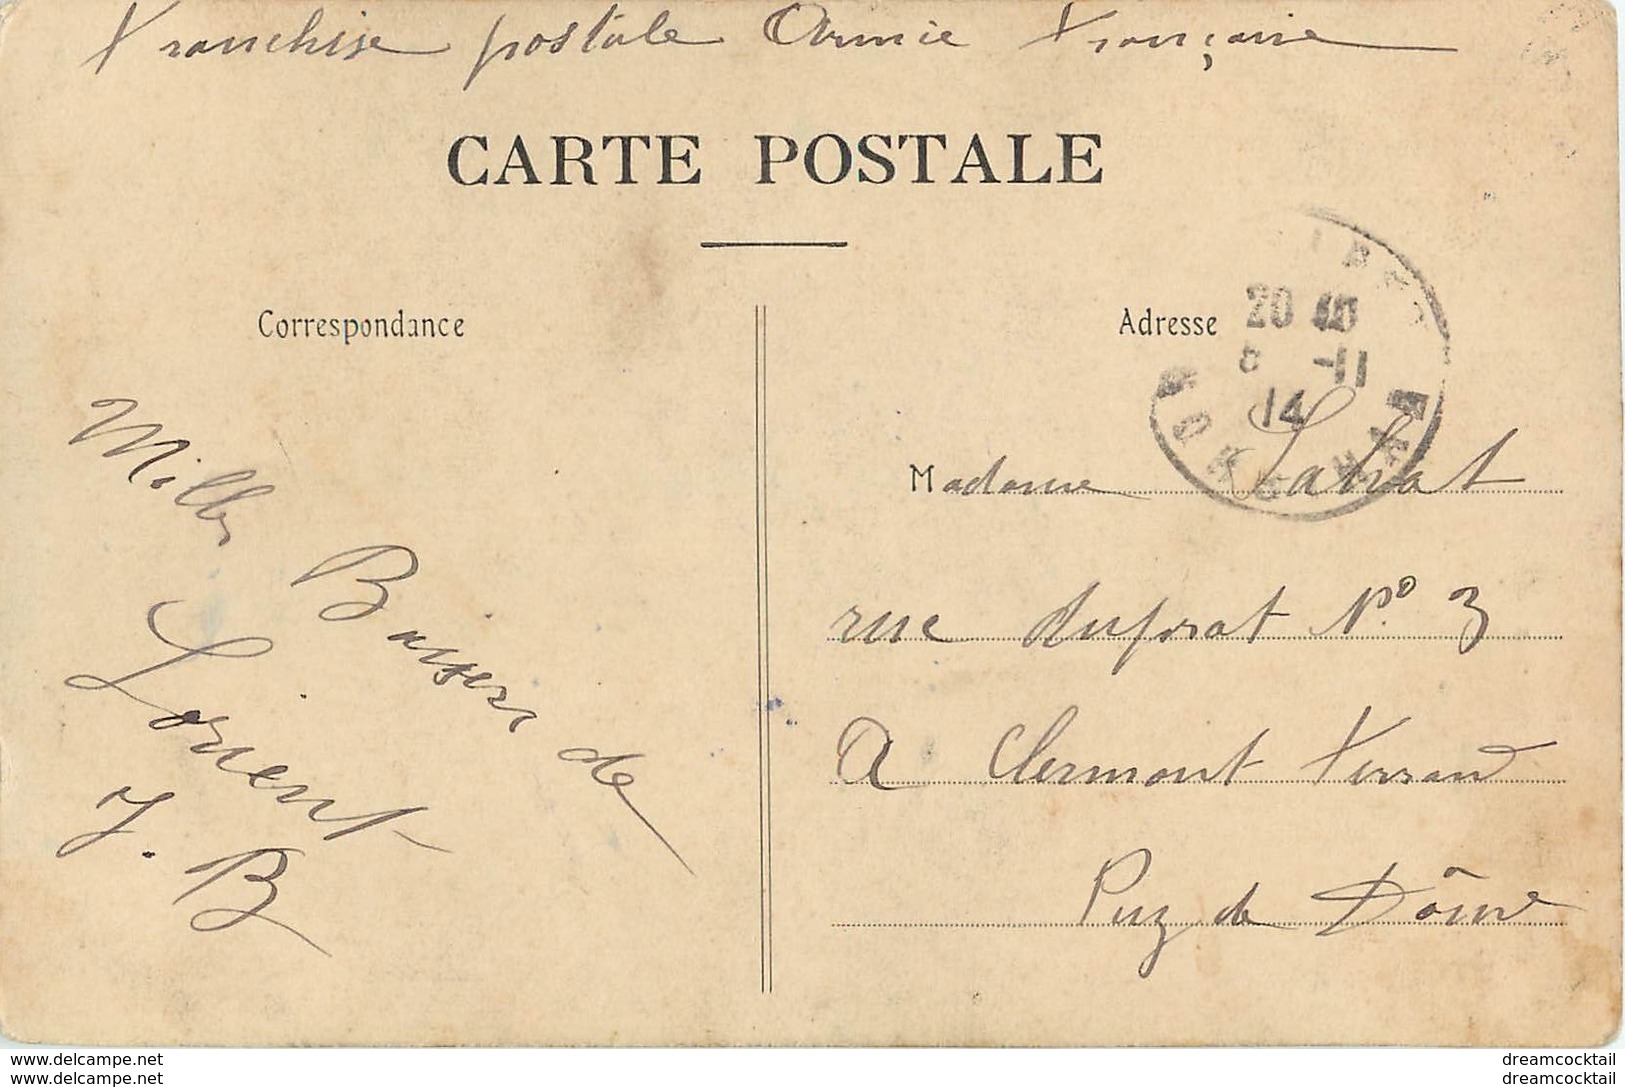 Franchise postale Armée Française
CARTE POSTALE
Correspondance
Adresse
20 15
-11
14
Mille
Baisers de
Lorient
J. B
Madame Labrat
rue Duprat N° 3
A Clermont Ferrand
Puy de Dôme
www.delcampe.net
www.delcampe.net
dreamcocktail
dreamcocktail